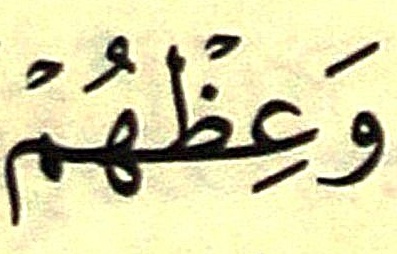 وَعِظْهُمْ